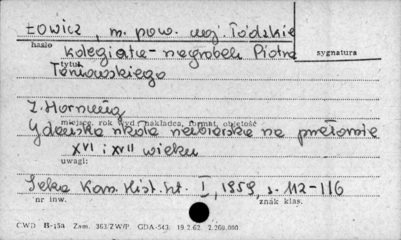 Łowicz, m. pow. woj. Łódzkie
hasło
kolegiata - nagrobek Piotra
sygnatura
tytuł
Tarnowskiego
Z. Hornung
miejsce, rok wyd., nakładca, format, objętość
Gdańska szkoła rzeźbiarska na przełomie
XVI i XVII wieku
uwagi:
Teka Kom. Hist. Szt. I, 1959, s. 112-116
nr inw.
znak klas.
CWD B-15a Zam. 363/ZW/P. GDA-543. 19.2.62. 2.200.000